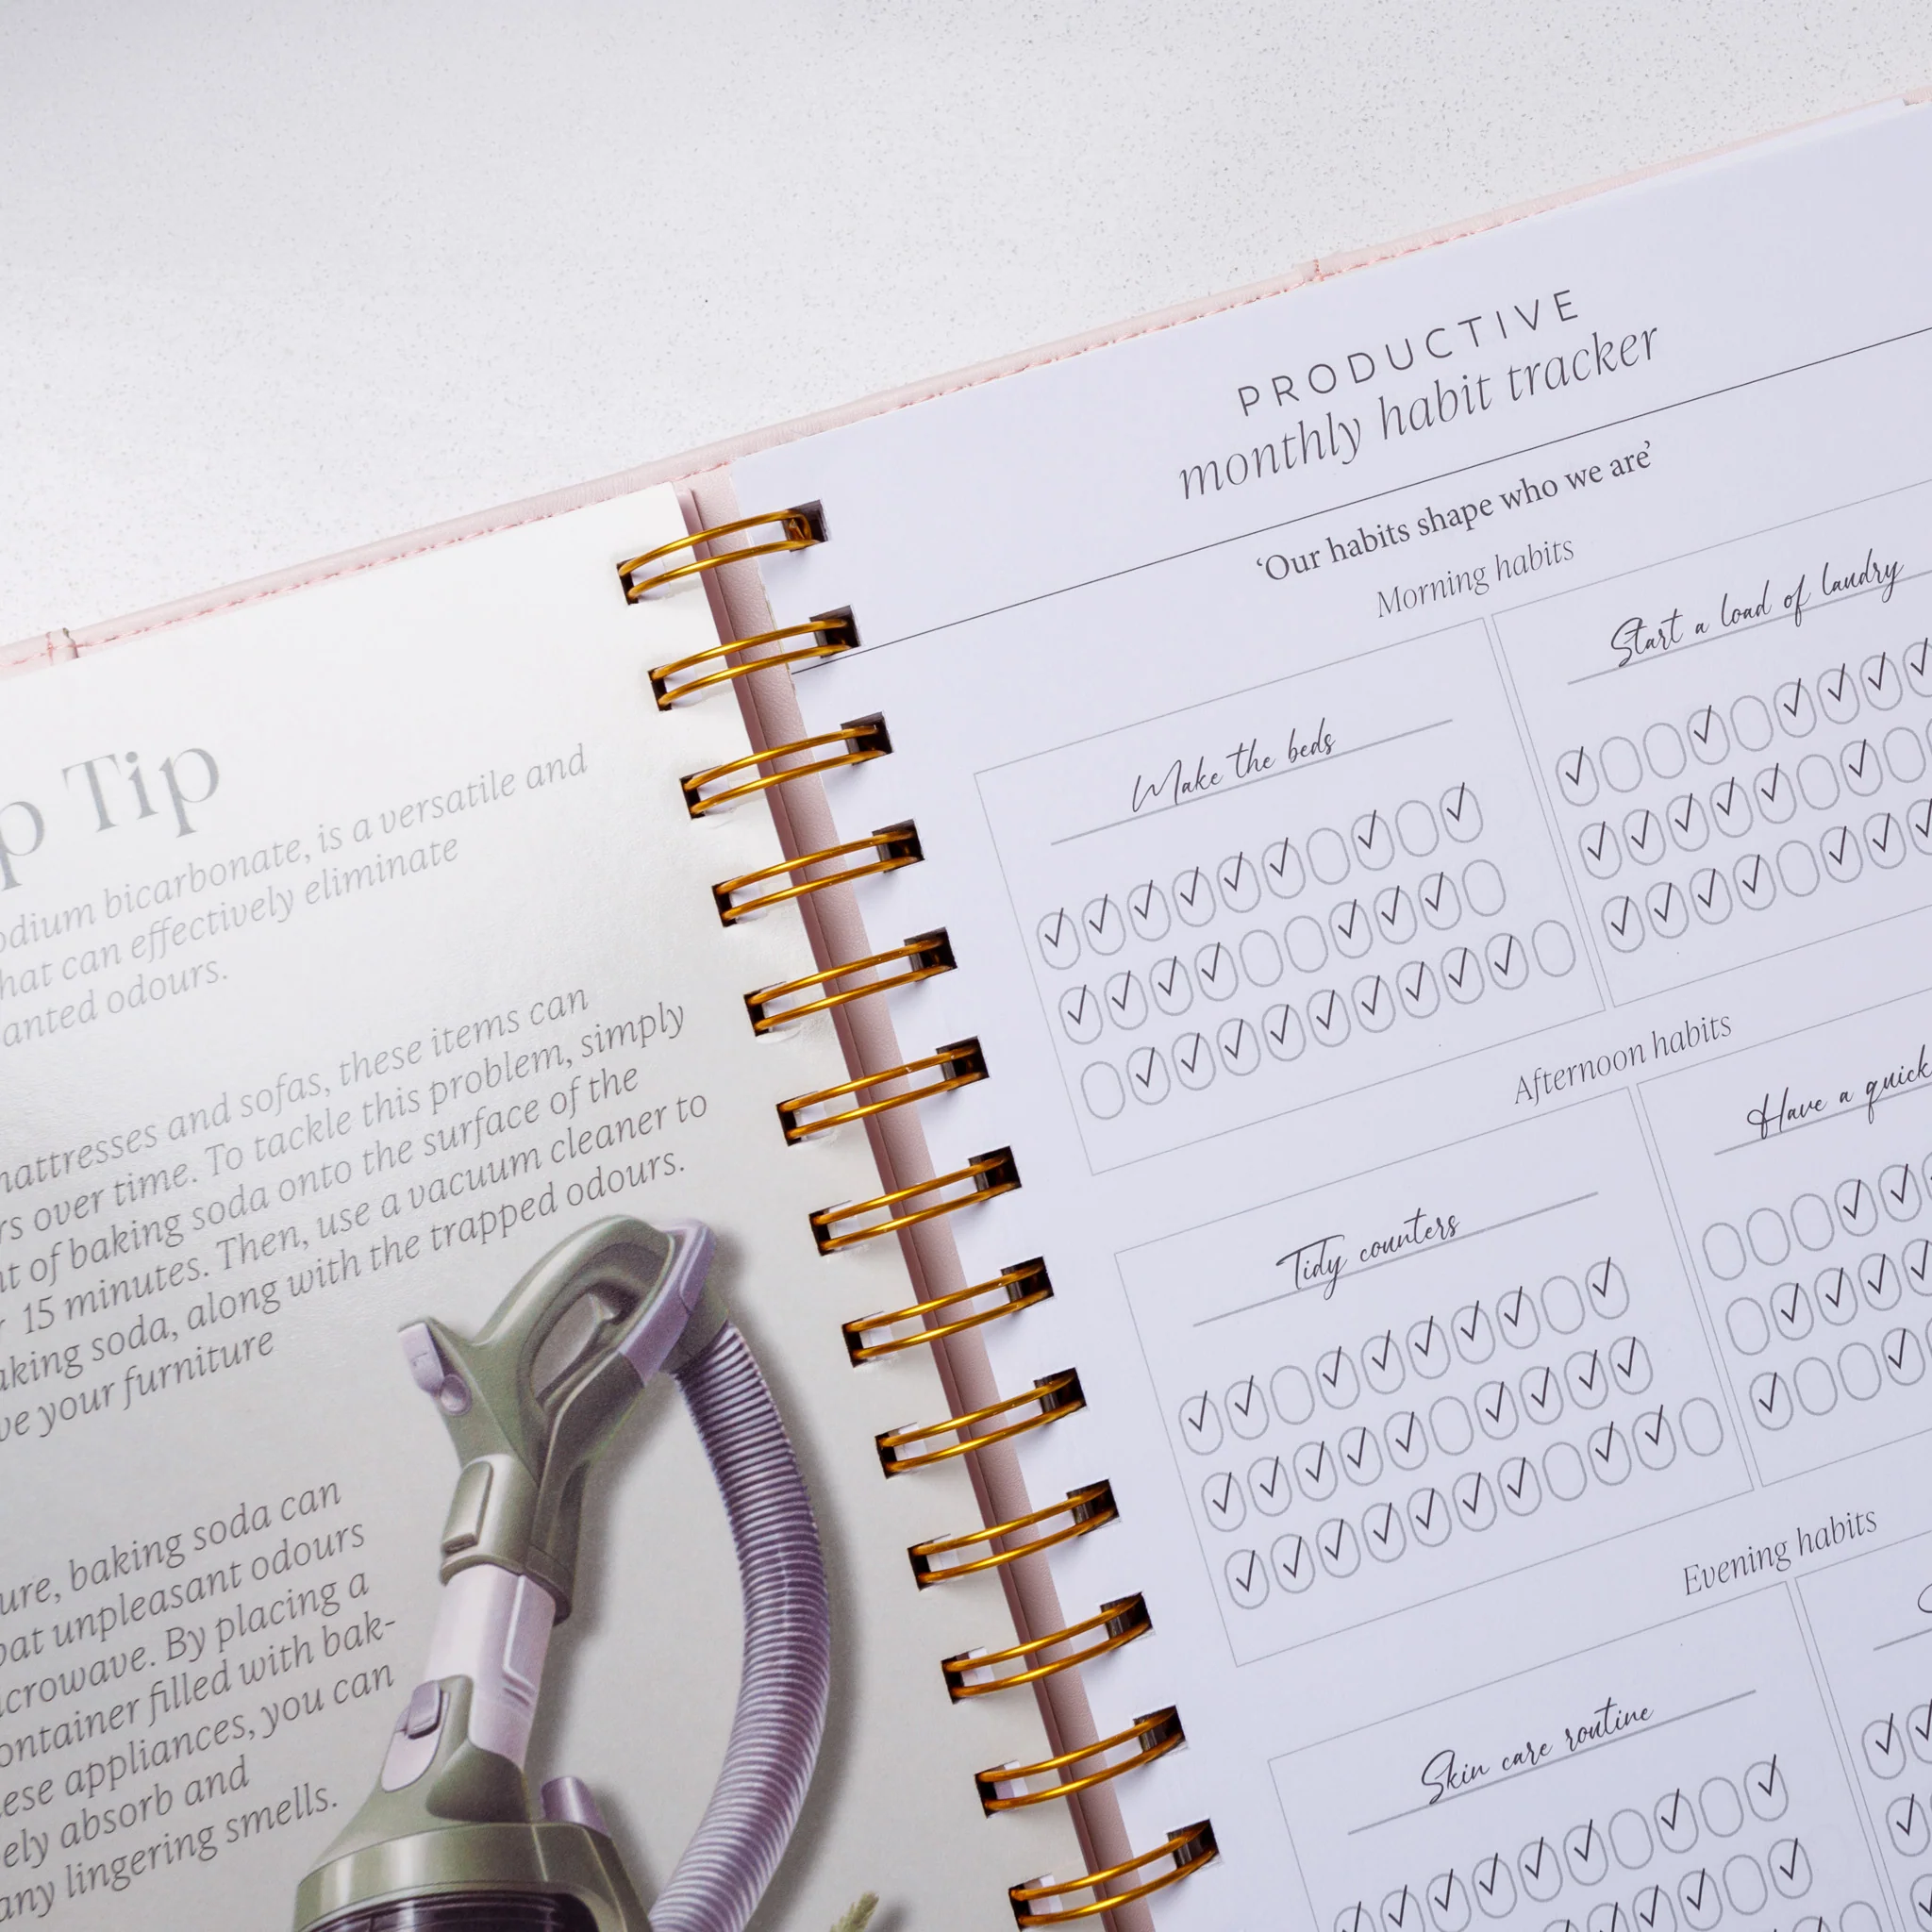 Tip
bicarbonate, is a versatile and
that can effectively eliminate
odours.
mattresses and sofas, these items can
over time. To tackle this problem, simply
of baking soda onto the surface of the
15 minutes. Then, use a vacuum cleaner to
soda, along with the trapped odours.
your furniture
baking soda can
unpleasant odours
By placing a
filled with bak-
appliances, you can
absorb and
any lingering smells.
PRODUCTIVE
monthly habit tracker
‘Our habits shape who we are’
Morning habits
Make the beds
Start a load of laudry
Afternoon habits
Tidy counters
Have a quick
Evening habits
Skin care routine